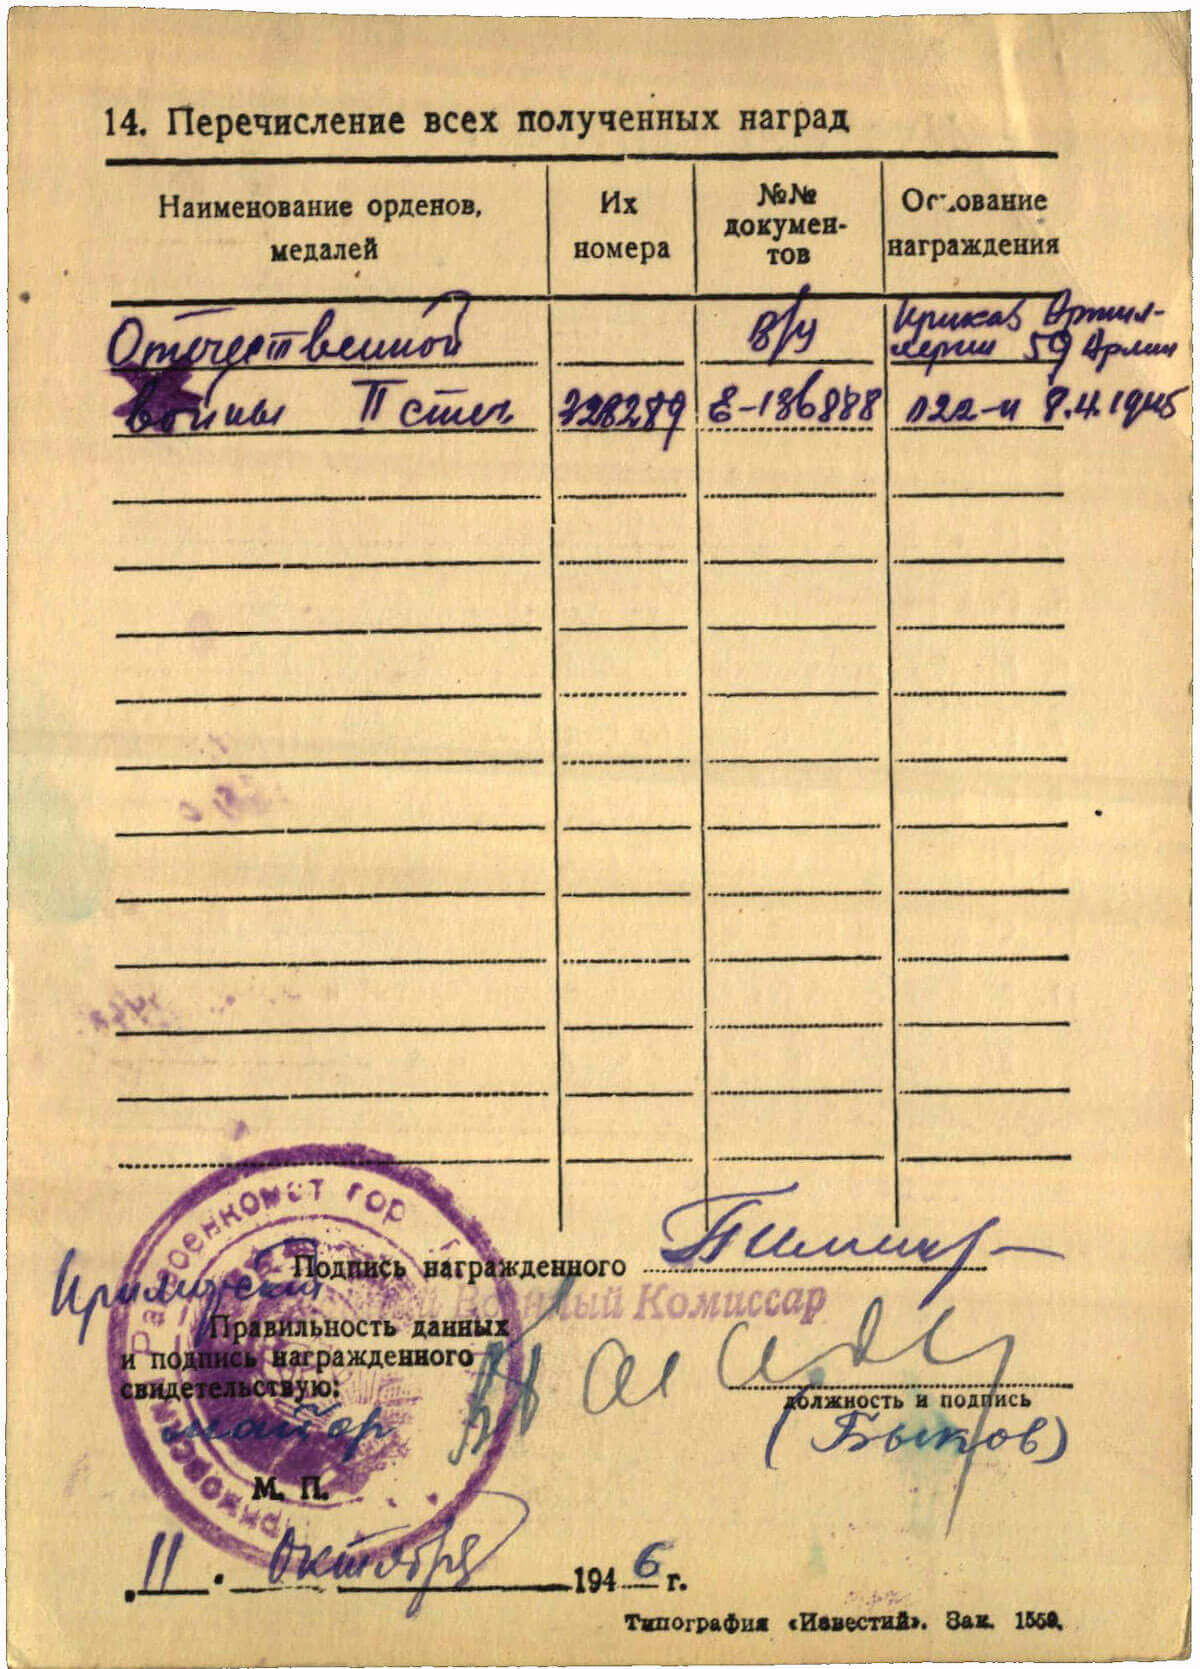 14. Перечисление всех полученных наград
Наименование орденов, медалей
Их номера
№№ документов
Основание награждения
Отечественной
в/у
Приказ Артил-
лерии 59 Армии
войны II степ
328289
Е-136888
022-н 8.4.1945
Райвоенкомат гор
Подпись награжденного
Военный Комиссар
Правильность данных
и подпись награжденного
свидетельствую:
майор
должность и подпись
(Быков)
М. П.
11. Октября 1946 г.
Типография «Известий». Зак. 1559.